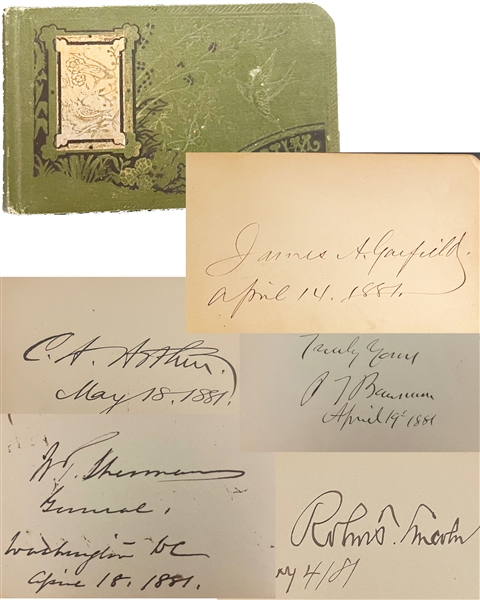 James A. Garfield.
April 14. 1881.
C. A. Arthur.
May 18. 1881.
Truly Yours
P T Barnum
April 19 1881
W. T. Sherman
General,
Washington DC
April 18. 1881.
Robert T. Lincoln
4/81